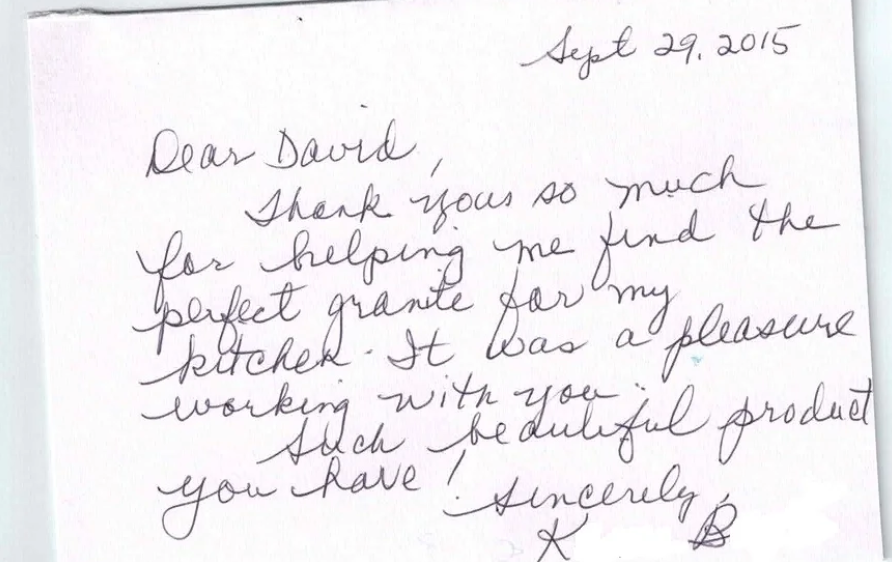 Sept 29, 2015
Dear David,
Thank you so much
for helping me find the
perfect granite for my
kitchen. It was a pleasure
working with you.
Such beautiful product
you have!
Sincerely,
K B